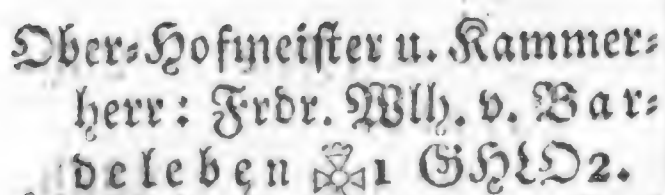 Ober-Hofmeister u. Kammer-
herr: Frdr. Wlh. v. Bar-
deleben ✠1 GHLO2.